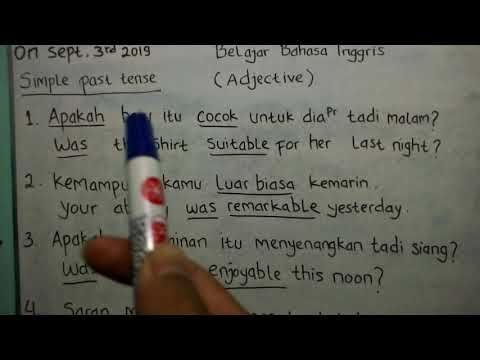 On Sept. 3rd 2019 Belajar Bahasa Inggris
Simple past tense (Adjective)
1. Apakah itu cocok untuk dia Pr tadi malam?
Was shirt suitable for her last night?
2. Kemampuan kamu Luar biasa kemarin.
your was remarkable yesterday.
3. itu menyenangkan tadi siang?
Was enjoyable this noon?
4. Saran